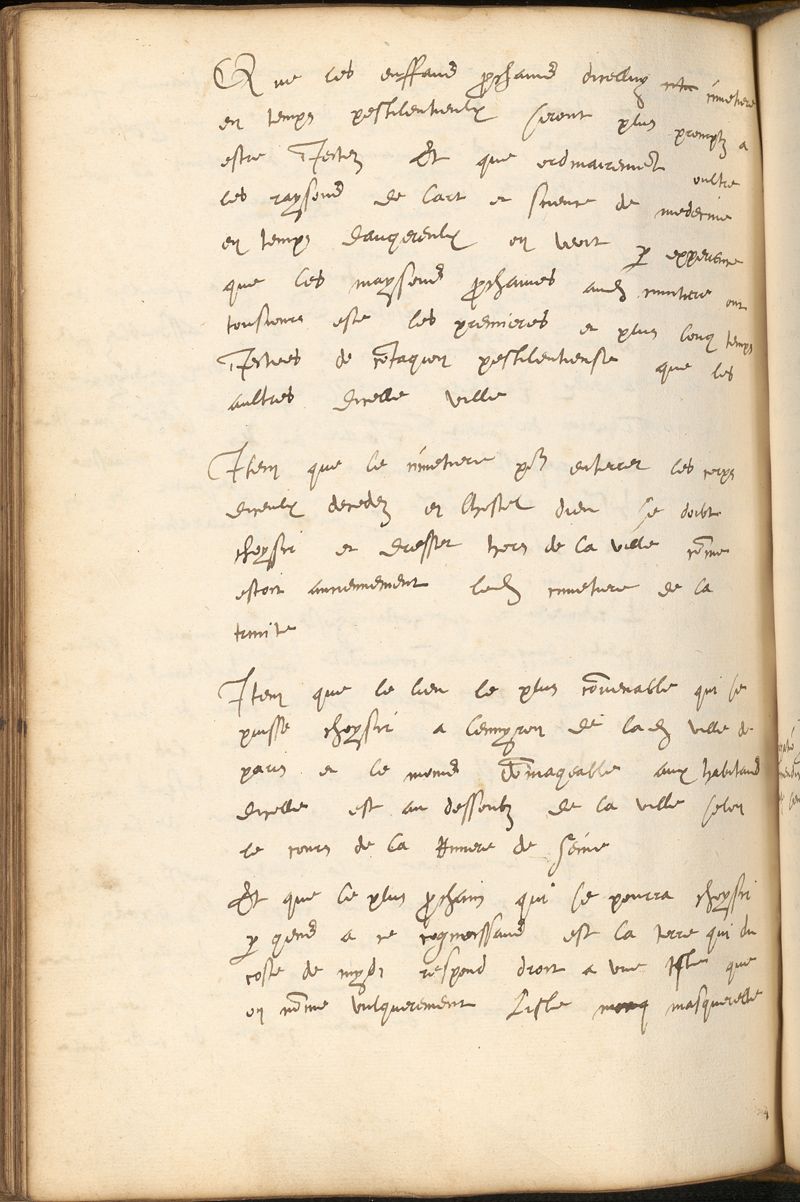 Que les enffans prochains dicelluy cimetiere
en temps pestilentieulx seront plus promptz a
estre Jectez Et que ordinairement oultre
les raysons de lart et science de medecine
en temps dangereulx on veoit par experience
que les maysons prochaines aud cimitiere ont
tousiours este les premieres et plus long temps
Jectees de cotagion pestilentieuse que les
aultres dicelle ville
Item que le cimetiere pour enterrer les corps
diceulx decedez en lhostel dieu se doibt
choysir et dresser hors de la ville come
estoit anciennement led cimetiere de la
trinite
Item que le lieu le plus covenable qui se
puisse choysir a lenviron de lad ville de
paris et le moins domageable aux habitans
dicelle est au dessoubz de la ville selon
le cours de la Riviere de Seine
Et que le plus prochain qui se pourra choysir
par gens a ce cognoissans est la terre qui du
coste de mydi respond droit a une Isle que
on nome vulguerement Lisle masquerelle